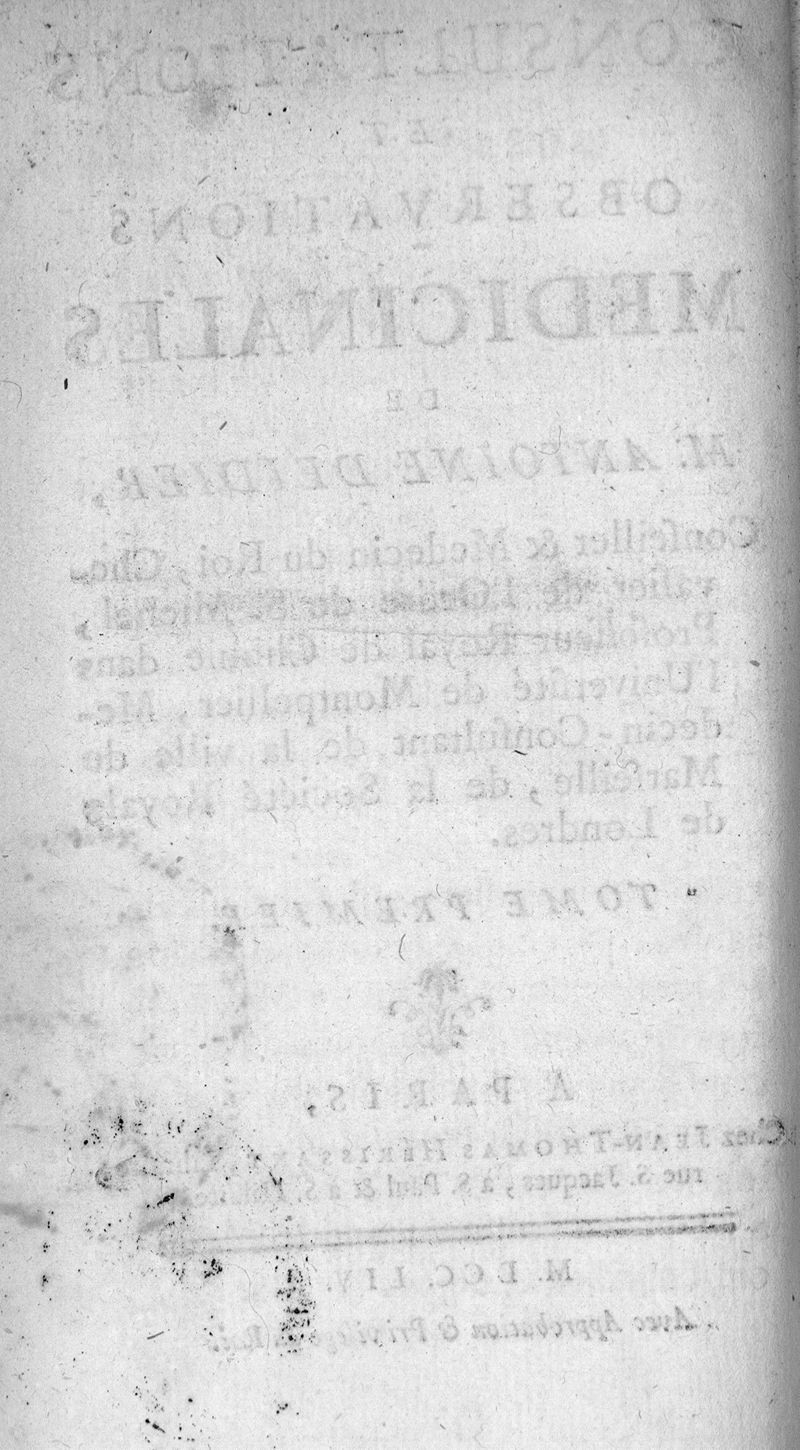 CONSULTATIONS
ET
OBSERVATIONS
MEDICINALES
DE
M. ANTOINE DEIDIER,
Conseiller & Medecin du Roi, Che-
valier de l'Ordre de S. Michel,
Professeur Royal de Chimie dans
l'Université de Montpellier, Me-
decin-Consultant de la ville de
Marseille, de la Société Royale
de Londres.
TOME PREMIER.
A PARIS,
Chez JEAN-THOMAS HERISSANT,
rue S. Jacques, à S. Paul & à S.
M. DCC. LIV.
Avec Approbation & Privilege du Roi.